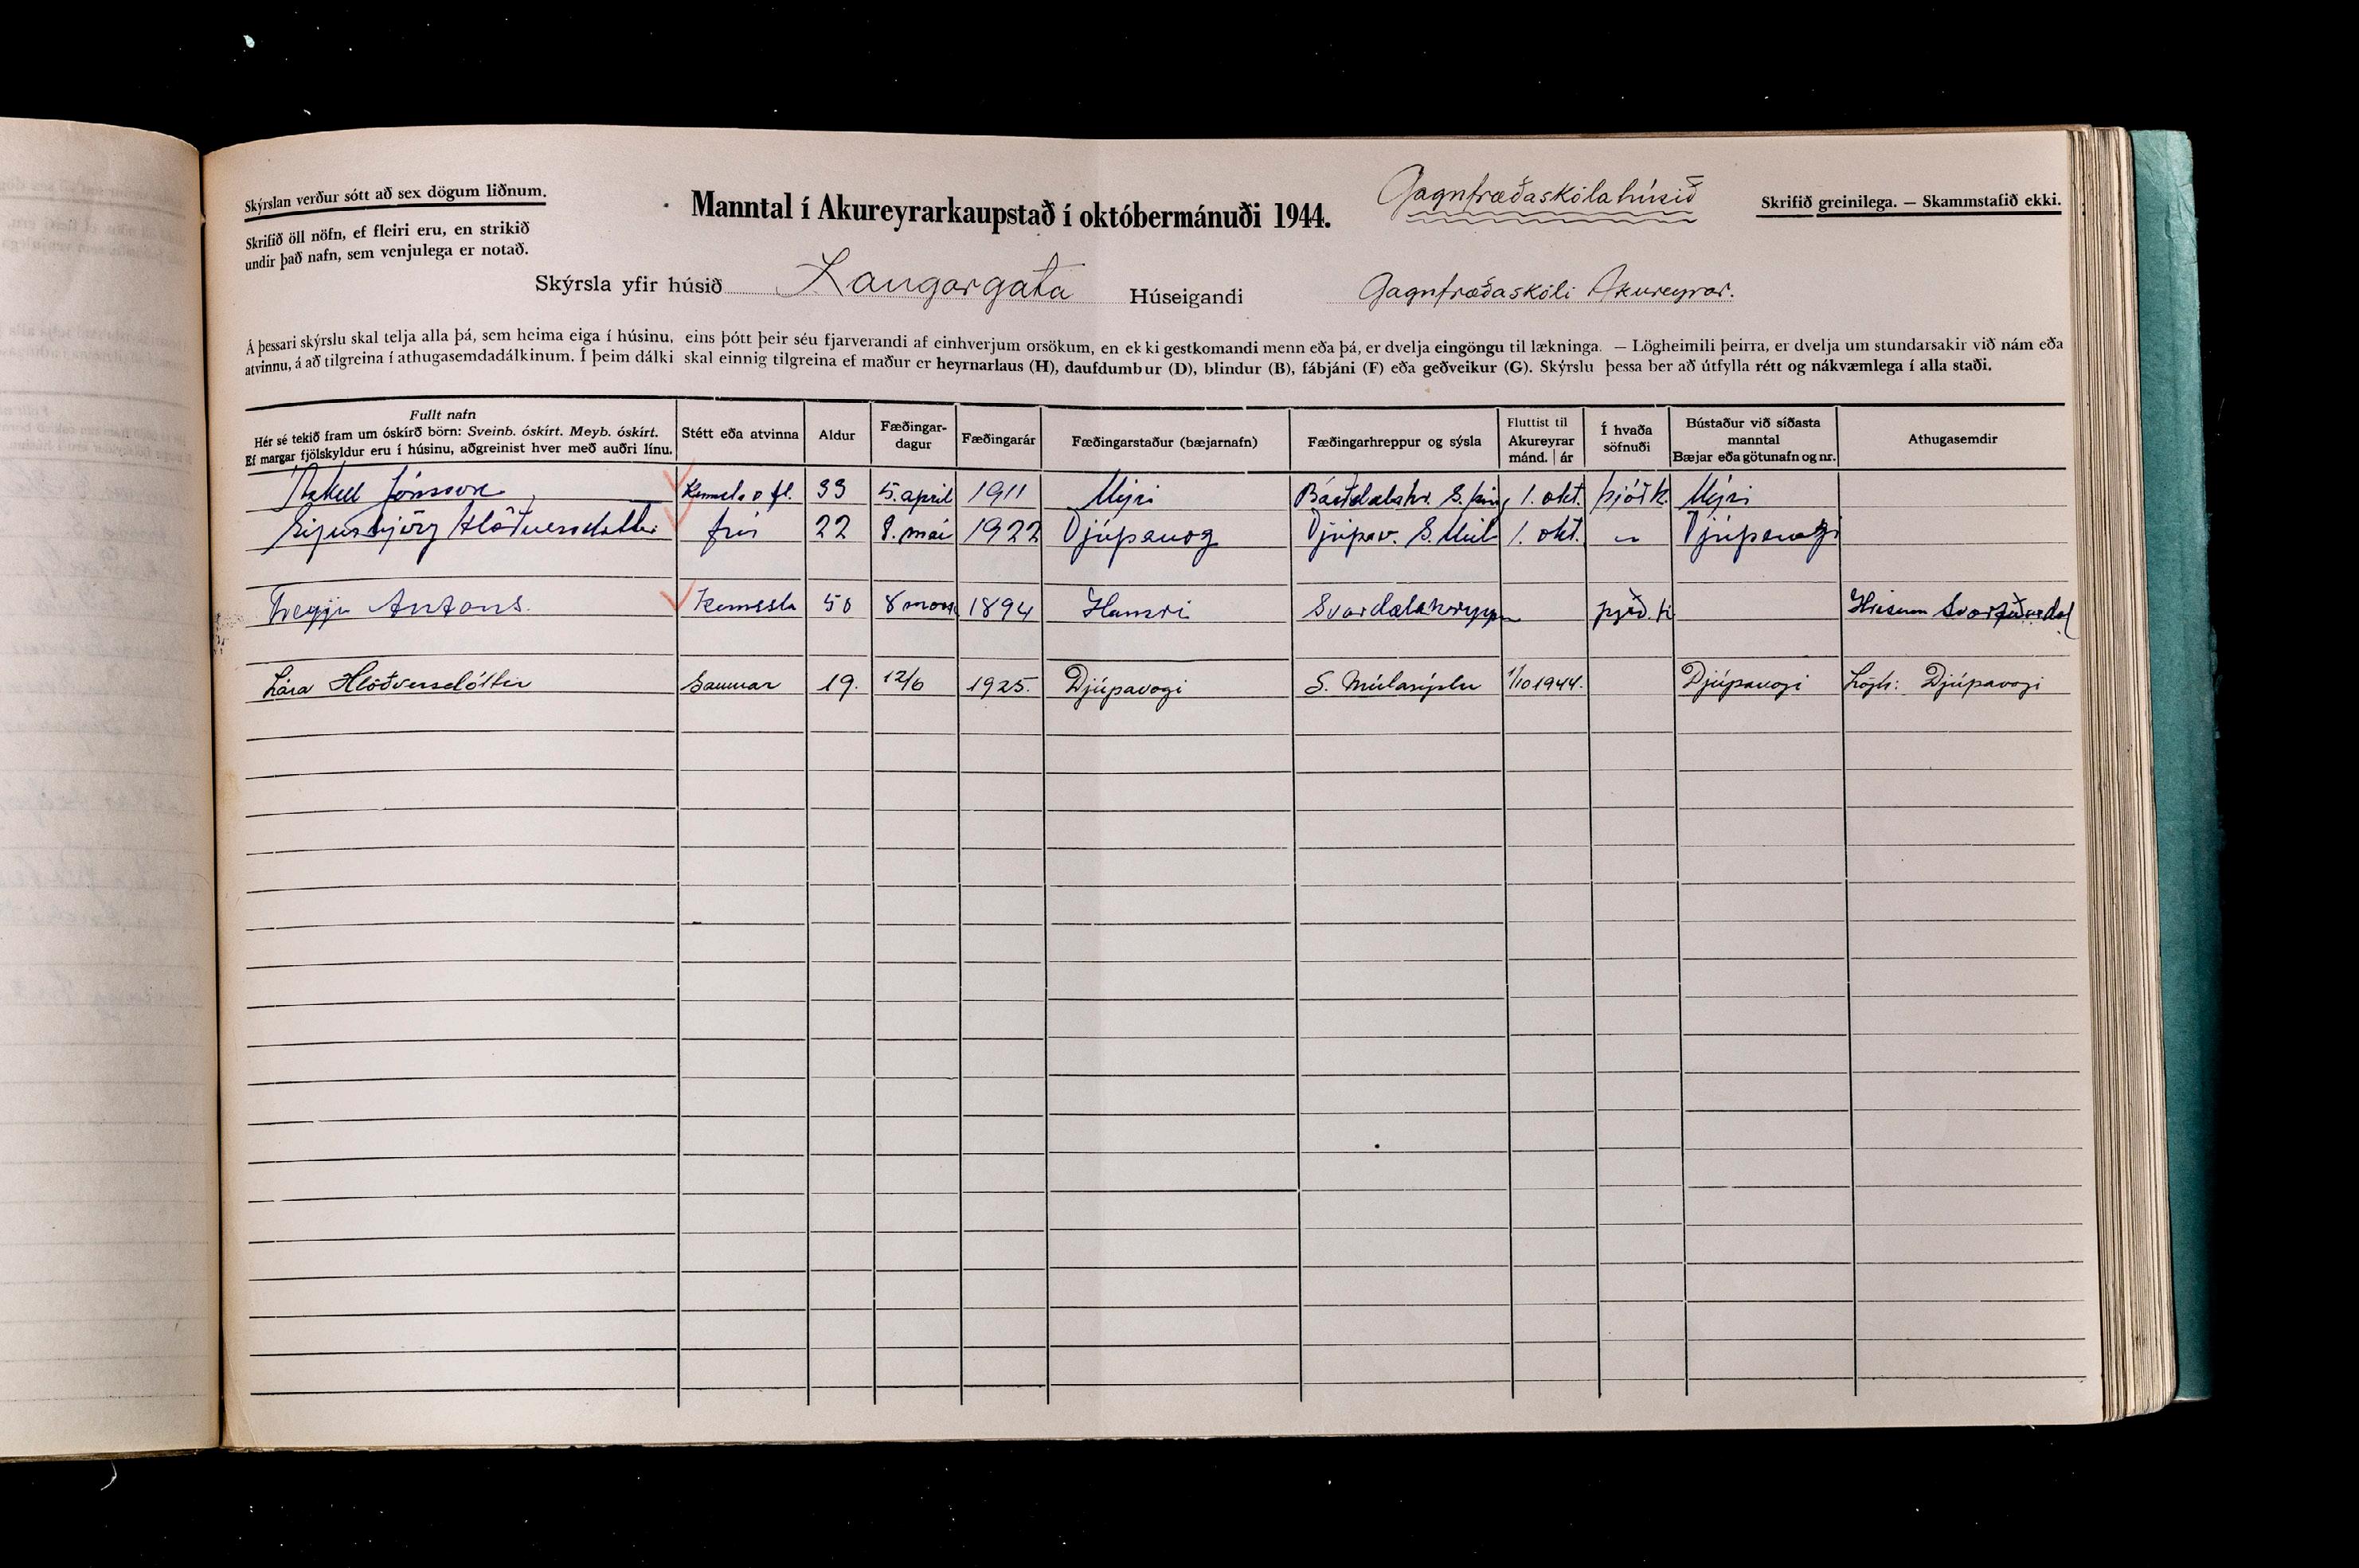 Skýrslan verður sótt að sex dögum liðnum.
Skrifið öll nöfn, ef fleiri eru, en strikið
undir það nafn, sem venjulega er notað.
Manntal í Akureyrarkaupstað í októbermánuði 1944.
Gagnfræðaskólahúsið
Skrifið greinilega. — Skammstafið ekki.
Skýrsla yfir húsið Laugargata Húseigandi Gagnfræðaskóli Akureyrar.
Á þessari skýrslu skal telja alla þá, sem heima eiga í húsinu, eins þótt þeir séu fjarverandi af einhverjum orsökum, en ekki gestkomandi menn eða þá, er dvelja eingöngu til lækninga. — Lögheimili þeirra, er dvelja um stundarsakir við nám eða
atvinnu, á að tilgreina í athugasemdadálkinum. Í þeim dálki skal einnig tilgreina ef maður er heyrnarlaus (H), daufdumbur (D), blindur (B), fábjáni (F) eða geðveikur (G). Skýrslu þessa ber að útfylla rétt og nákvæmlega í alla staði.
Fullt nafn
Hér sé tekið fram um óskírð börn: Sveinb. óskírt. Meyb. óskírt.
Ef margar fjölskyldur eru í húsinu, aðgreinist hver með auðri línu.
Stétt eða atvinna
Aldur
Fæðingar-
dagur
Fæðingarár
Fæðingarstaður (bæjarnafn)
Fæðingarhreppur og sýsla
Fluttist til
Akureyrar
mánd. | ár
Í hvaða
söfnuði
Bústaður við síðasta
manntal
Bæjar eða götunafn og nr.
Athugasemdir
Jónsson 33 5. apríl 1911 Mýri Bárðdælahr. S. Þing 1. okt. þjóðk. Mýri
Sigurbjörg Hlöðversdóttir frú 22 8. maí 1922 Djúpavog Djúpav. S. Múl 1. okt. " Djúpavogi
Tryggvi Antons. Kennsla 50 8 1894 Hamri Svarfdælahrepp þjóð.k Hrísum Svarfaðardal
Lára Hlöðversdóttir Saumar 19. 12/6 1925. Djúpavogi S. Múlasýslu 1/10 1944. Djúpavogi Lögh: Djúpavogi